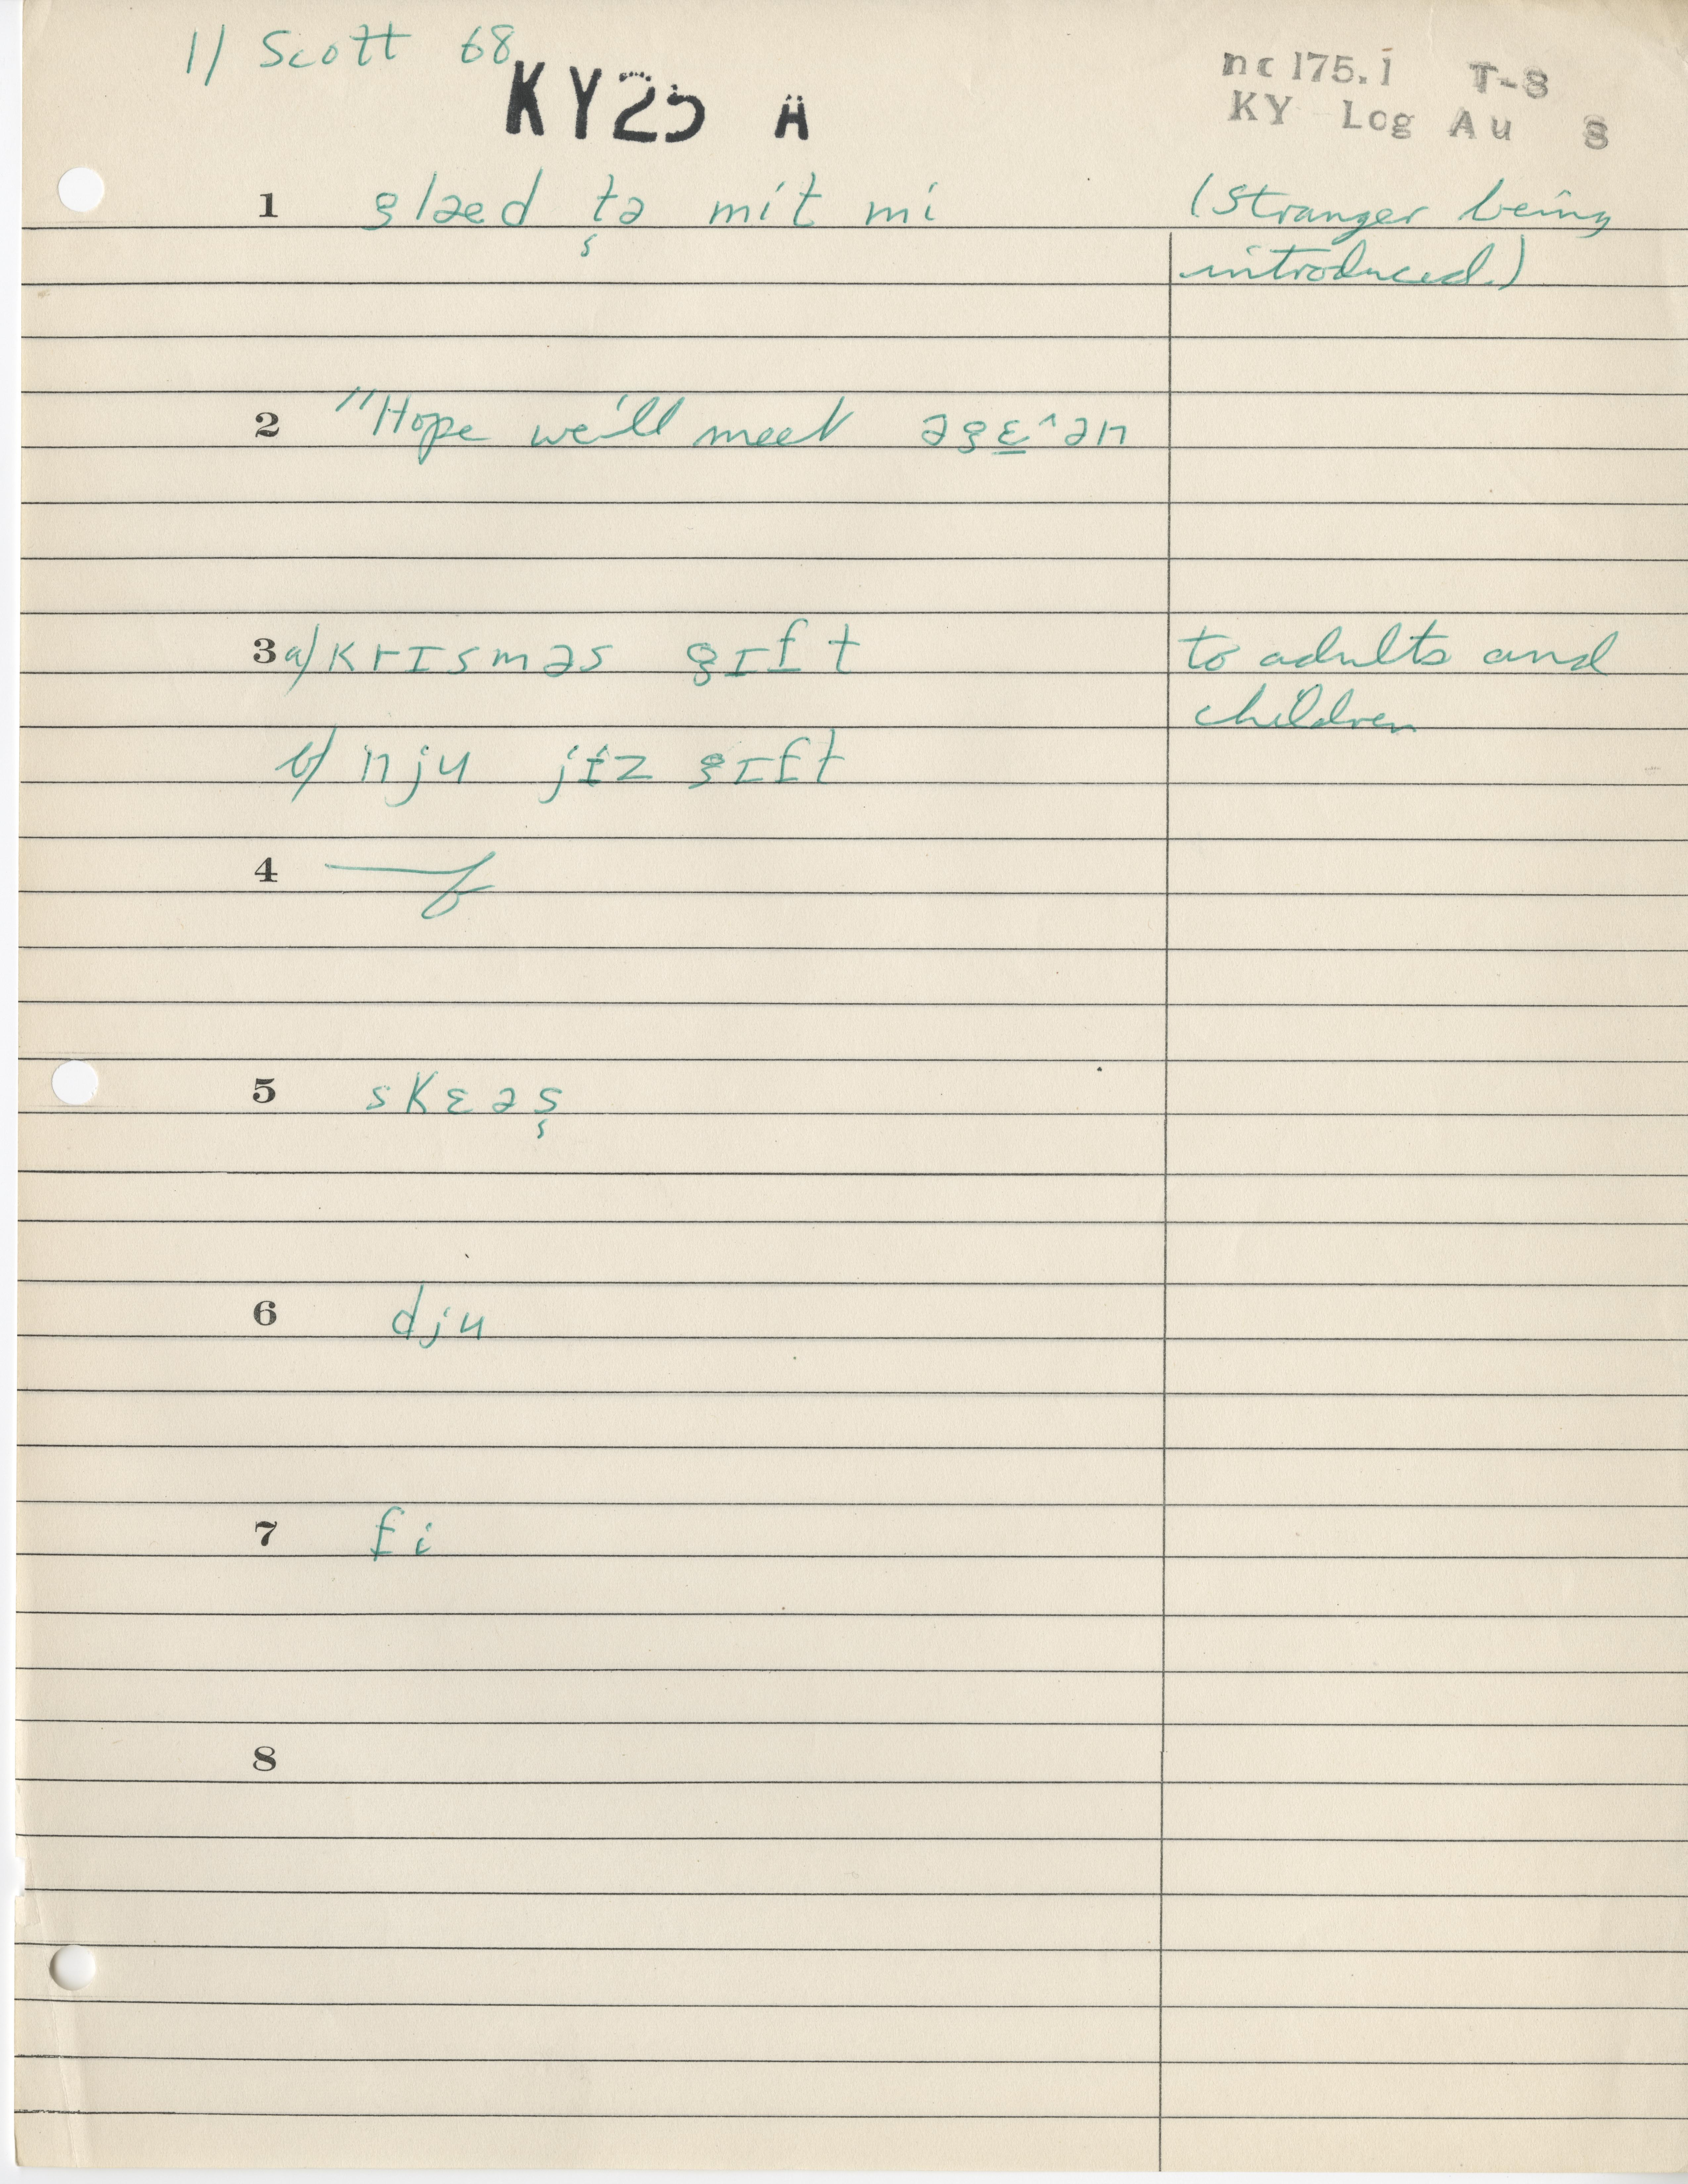 1) Scott 68
KY25 A
nc 175.1 T-8
KY Log Au 8
1 glæd t̬ə mit mi (stranger being
introduced.)
2 "Hope we'll meet əgɛ̱^ən
3 a) krɪsməs gɪft to adults and
children
b) nju jɨz gɪft
4
5 skɛəs̬
6 dju
7 fi
8